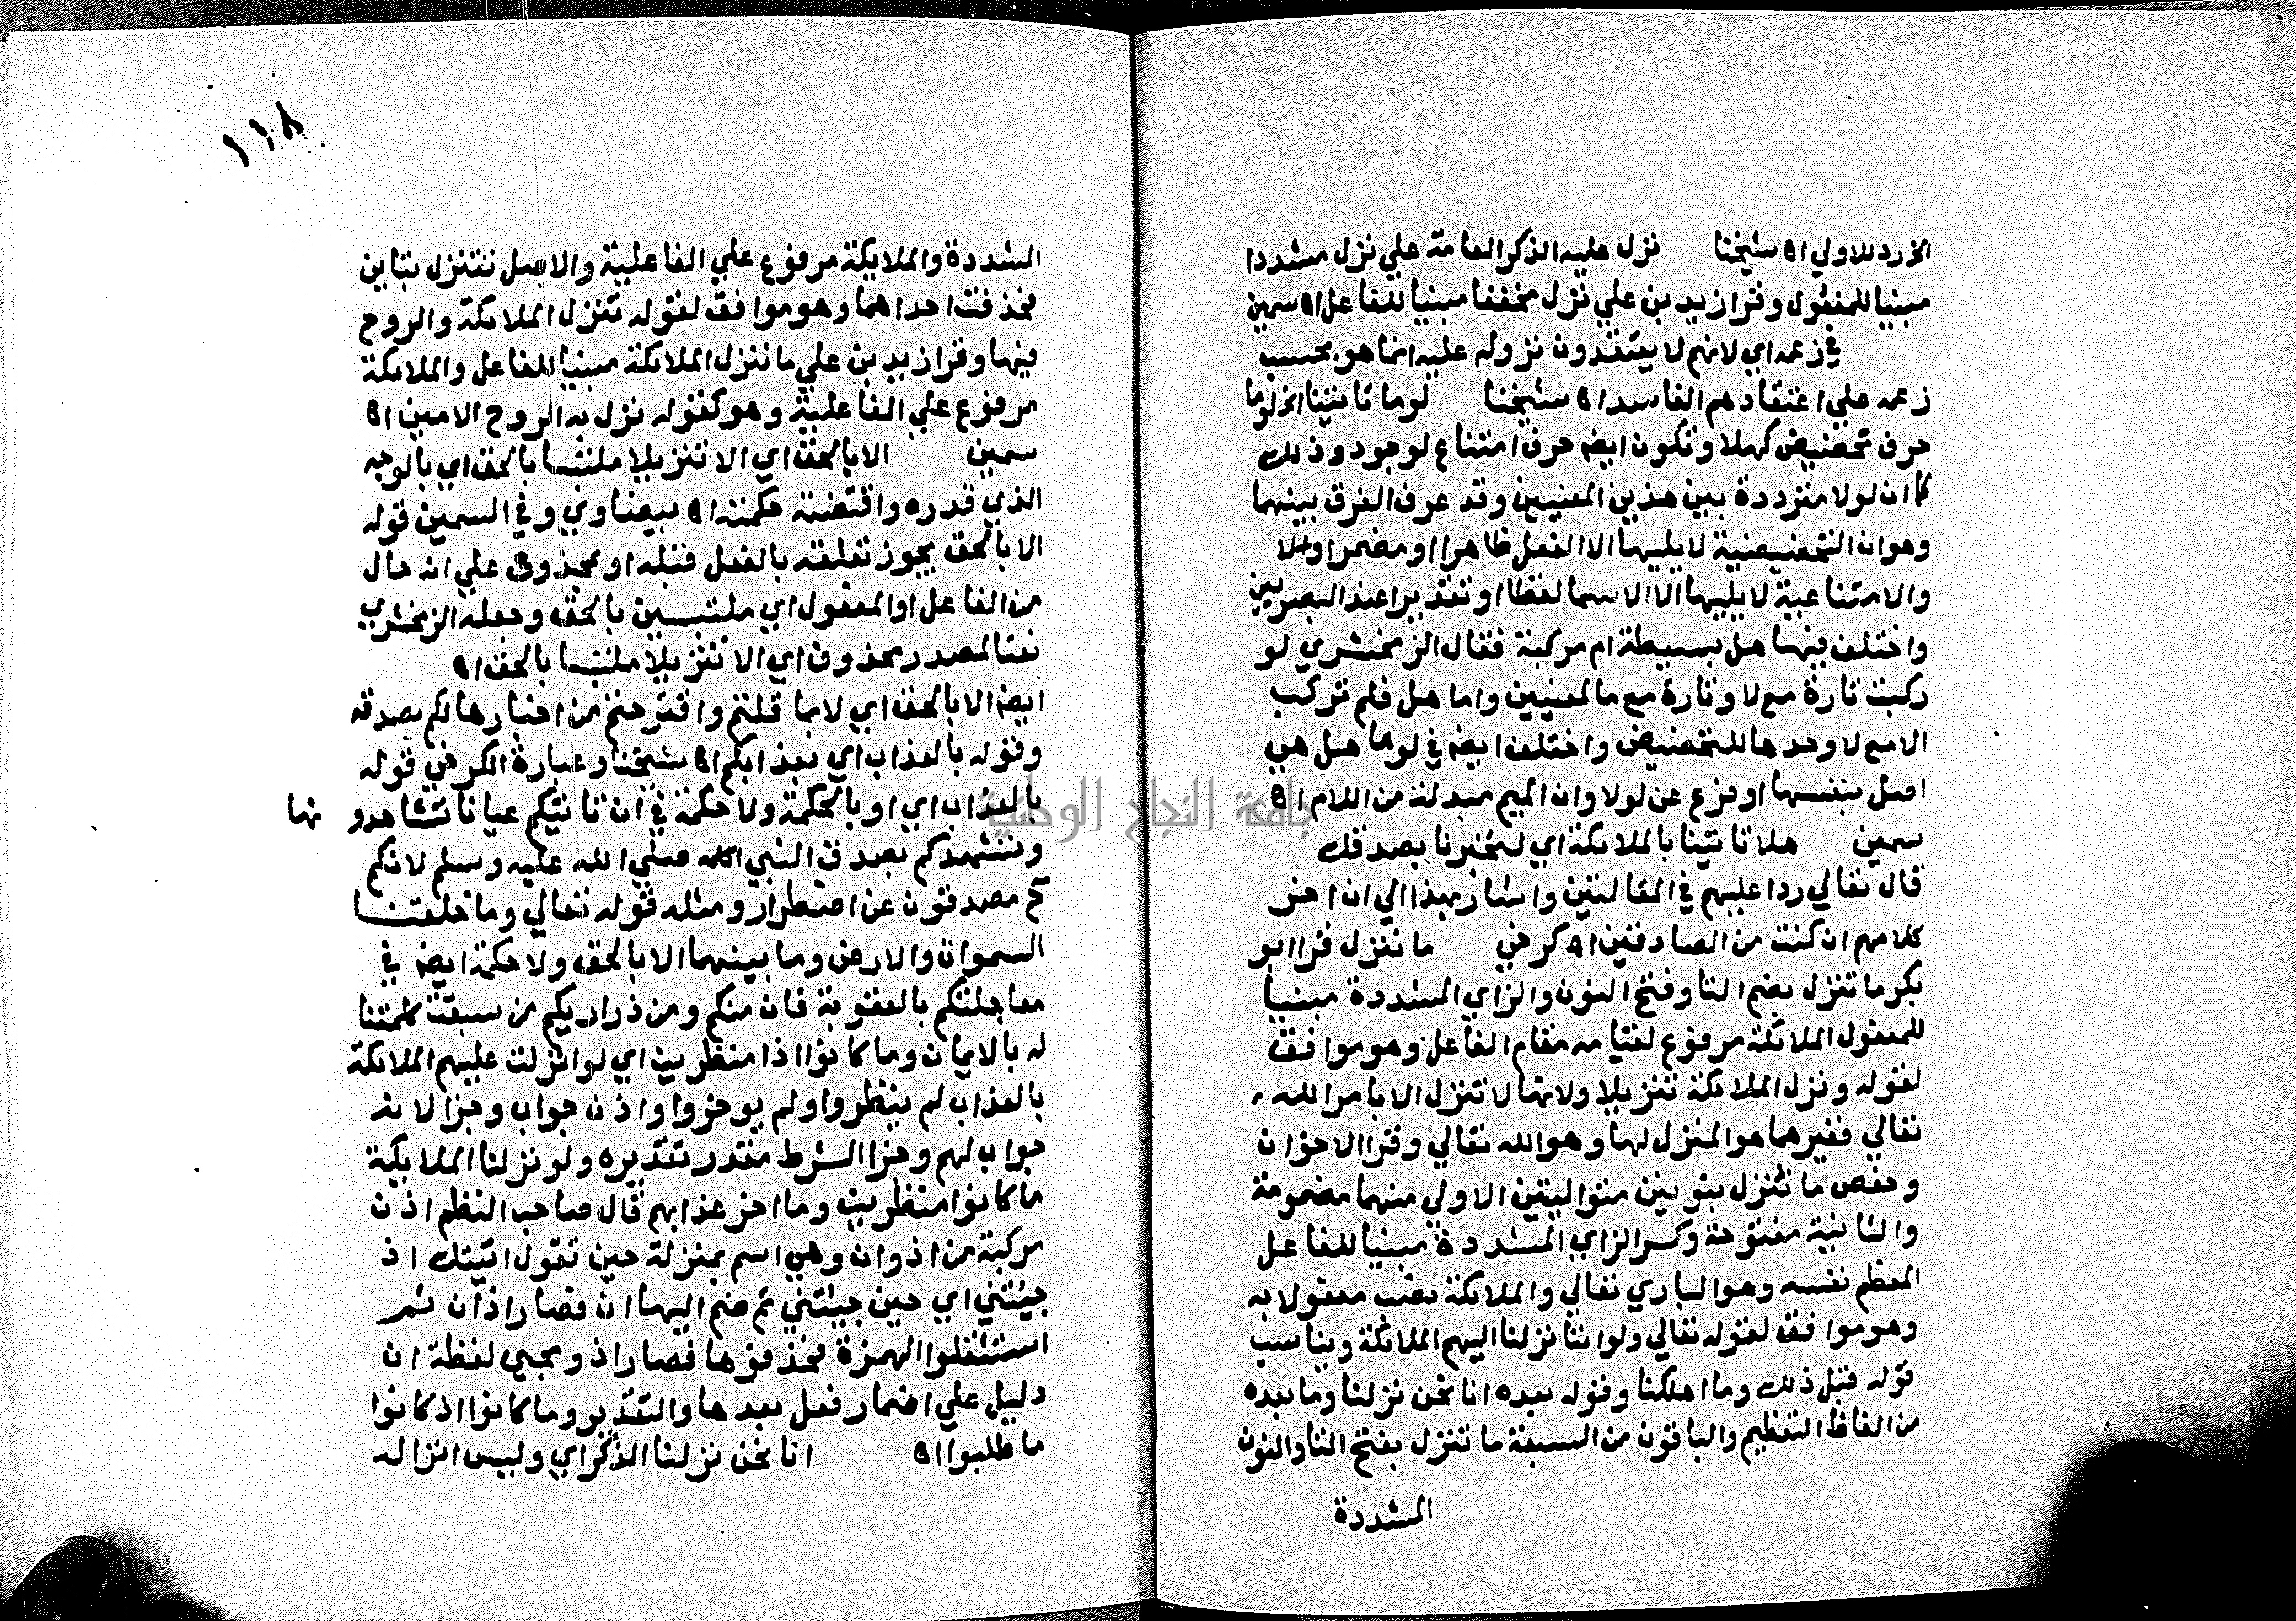 الخ رد للاولي اه شيخنا نزل عليه الذكر العامة علي نزل مشددا
مبنيا للمفعول وقرا زيد بن علي نزل مخففا مبنيا للفاعل اه سمين
في زعمه اي لانهم لا يعتقدون نزوله عليه انما هو بحسب
زعمه علي اعتقادهم الفاسد اه شيخنا لو ما تاتينا الخ لوما
حرف تحضيض كهلا وتكون ايضا حرف امتناع لوجود وذلك
كما ان لولا مترددة بين هذين المعنيين وقد عرف الفرق بينهما
وهو ان التحضيضية لا يليها الا الفعل ظاهرا او مضمرا
والامتناعية لا يليها الا الاسما لفظا او تقديرا عند البصريين
واختلف فيها هل بسيطة ام مركبة فقال الزمخشري لو
ركبت تارة مع لا وتارة مع ما لمعنيين واما هل فلم تركب
الا مع لا وحدها للتحضيض واختلف ايضا في لوما هل هي
اصل بنفسها او فرع عن لولا وان الميم مبدلة من اللام اه
سمين هلا تاتينا بالملائكة اي ليخبرونا بصدقك
قال تعالي ردا عليهم في المقالتين واشار بهذا الي ان اخر
كلامهم ان كنت من الصادقين اه كرخي ما تنزل قرا ابو
بكر ما تنزل بضم التا وفتح النون والزاي المشددة مبنيا
للمفعول الملائكة مرفوع لقيامه مقام الفاعل وهو موافق
لقوله ونزل الملائكة تنزيلا ولانها لا تنزل الا بامر الله
تعالي فغيرهما هو المنزل لها وهو الله تعالي وقرا الاخوان
وحفص ما ننزل بنونين متواليتين الاولي منهما مضمومة
والثانية مفتوحة وكسر الزاي المشددة مبنيا للفاعل
المعظم نفسه وهو الباري تعالي والملائكة نصب مفعولا به
وهو موافق لقوله تعالي ولو اننا نزلنا اليهم الملائكة ويناسب
قوله قبل ذلك وما اهلكنا وقوله بعده انا نحن نزلنا وما بعده
من الفاظ التعظيم والباقون من السبعة ما تنزل بفتح التا والنون
المشددة
١٦٨
المشددة والملايكة مرفوع علي الفاعلية والاصل تتنزل بتاين
فحذفت احداهما وهو موافق لقوله تنزل الملائكة والروح
فيها وقرا زيد بن علي ما تنزل الملائكة مبنيا للفاعل والملائكة
مرفوع علي الفاعلية وهو كقوله نزل به الروح الامين اه
سمين الا بالحق اي الا تنزيلا ملتبسا بالحق اي بالوجه
الذي قدره واقتضته حكمته اه بيضاوي وفي السمين قوله
الا بالحق يجوز تعلقه بالفعل قبله او بمحذوف علي انه حال
من الفاعل او المفعول اي ملتبسين بالحق وجعله الزمخشري
نعتا لمصدر محذوف اي الا تنزيلا ملتبسا بالحق اه
ايضا الا بالحق اي لا بما قلتم واقترحتم من اخبارها لكم بصدقه
وقوله بالعذاب اي بعذابكم اه شيخنا وعبارة الكرخي قوله
بالعذاب اي او بالحكمة ولا حكمة في ان تاتيكم عيانا تشاهدونها
وتشهدكم بصدق النبي صلي الله عليه وسلم لانكم
ح مصدقون عن اضطرار ومثله قوله تعالي وما خلقنا
السموات والارض وما بينهما الا بالحق ولا حكمة ايضا في
معاجلتكم بالعقوبة فان منكم ومن ذراريكم من سبقت كلمتنا
له بالايمان وما كانوا اذا منظرين اي لو انزلت عليهم الملائكة
بالعذاب لم ينظروا ولم يوخروا واذن جواب وجزا لانه
جواب لهم وجزا الشرط مقدر تقديره ولو نزلنا الملايكة
ما كانوا منظرين وما اخر عذابهم قال صاحب النظم اذن
مركبة من اذ وان وهي اسم بمنزلة حين تقول اتيتك اذ
جيئتني اي حين جيئتني ثم ضم اليها ان فصار اذ ان ثم
استثقلوا الهمزة فحذفوها فصار اذن ومجي لفظة ان
دليل علي اضمار فعل بعدها والتقدير وما كانوا اذ كانوا
ما طلبوا اه انا نحن نزلنا الذكر اي وليس انزاله